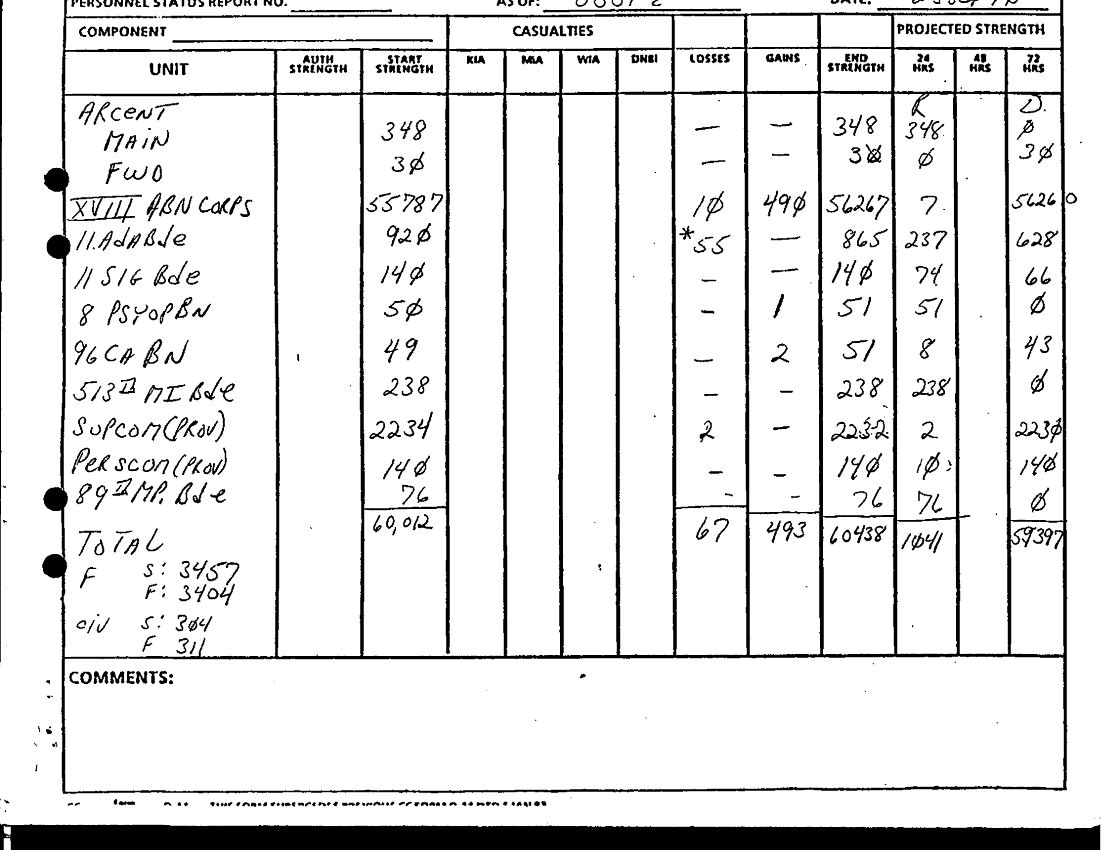 PERSONNEL STATUS REPORT NO. AS OF: DATE:
COMPONENT CASUALTIES PROJECTED STRENGTH
UNIT AUTH STRENGTH START STRENGTH KIA MIA WIA DNBI LOSSES GAINS END STRENGTH 24 HRS 48 HRS 72 HRS
ARCENT R D.
MAIN 348 — — 348 348 Ø
FWD 3Ø — — 3Ø Ø 3Ø
XVIII ABN CORPS 55787 1Ø 49Ø 56267 7 5626O
11 ADA Bde 92Ø *55 — 865 237 628
11 SIG Bde 14Ø - — 14Ø 74 66
8 PSYOP BN 5Ø - 1 51 51 Ø
96 CA BN 49 — 2 51 8 43
513 MI Bde 238 - - 238 238 Ø
SUPCOM (PROV) 2234 2 - 2232 2 223Ø
PERSCOM (PROV) 14Ø - - 14Ø 14Ø
89 MP. Bde 76 - - 76 76 Ø
TOTAL 60,012 67 493 60438 1Ø41 59397
F S: 3457
F: 3404
civ S: 3Ø4
F 311
COMMENTS: